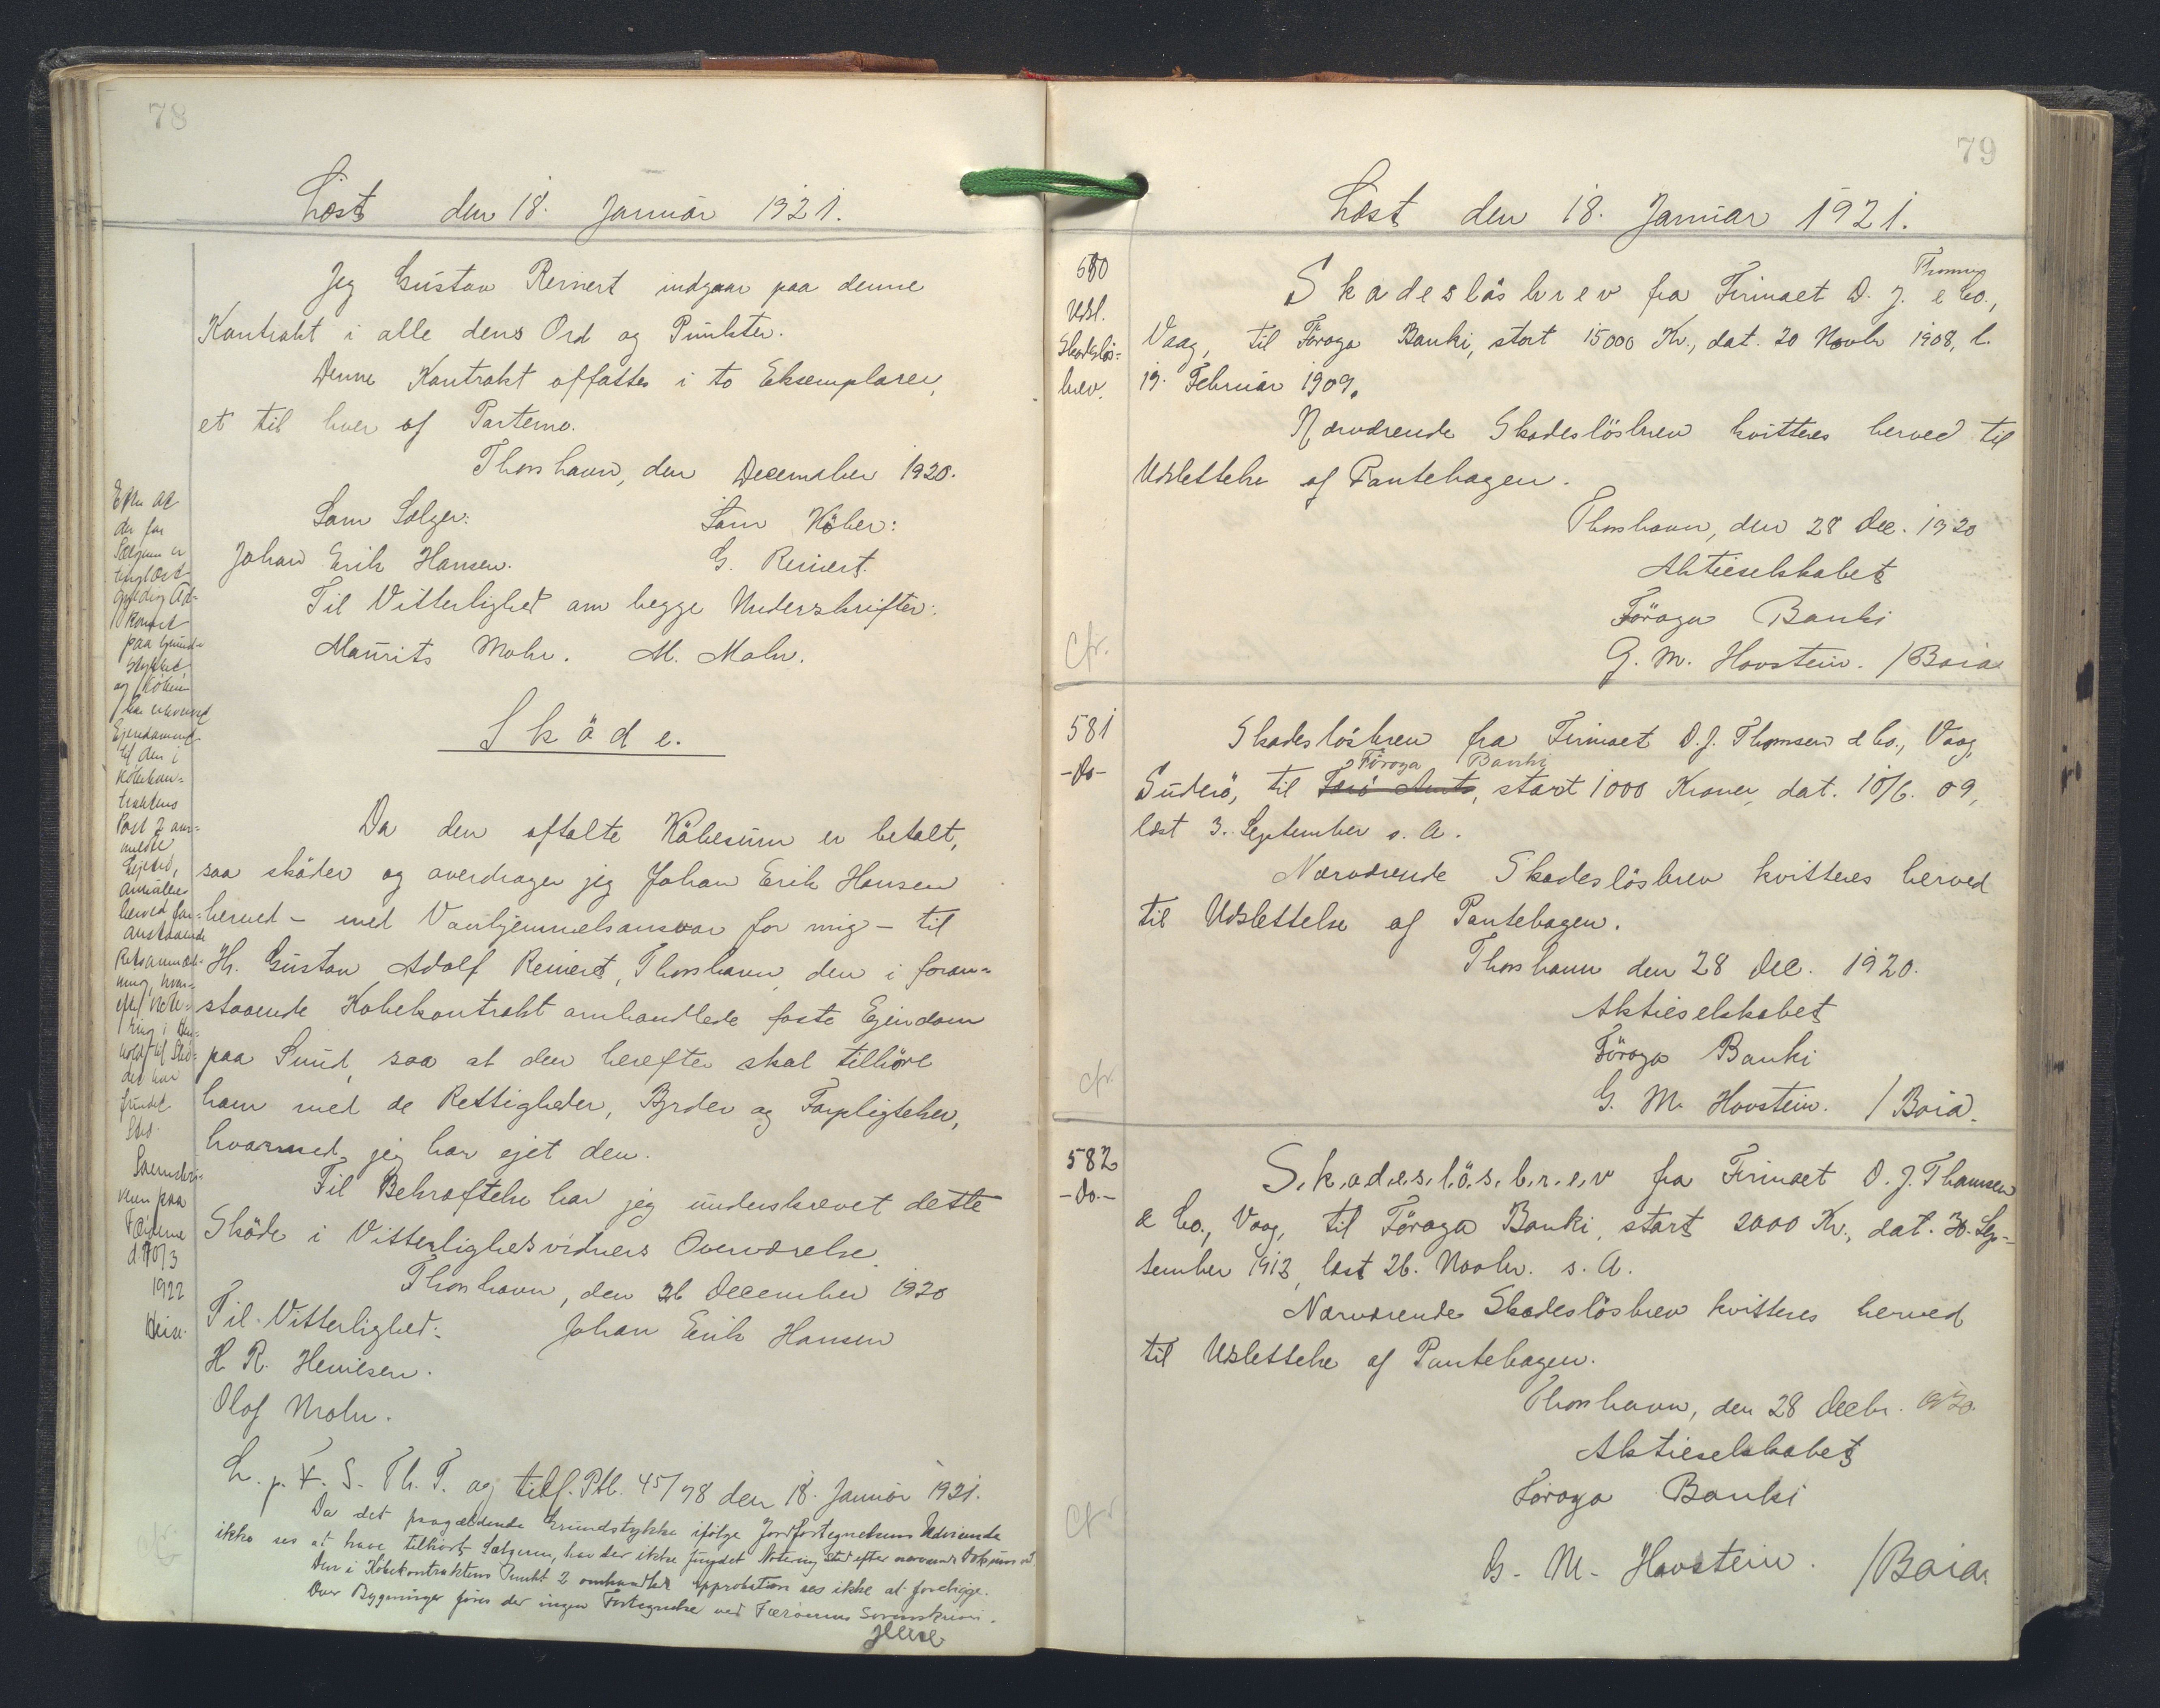 78
Læst den 18. Januar 1921.
Jeg Gustav Reinert indgaar paa denne
Kontrakt i alle dens Ord og Punkter.
Denne Kontrakt affattes i to Eksemplarer,
et til hver af Parterne.
Thorshavn, den December 1920.
Som Sælger: Som Köber:
Johan Erik Hansen. G. Reinert.
Til Vitterlighed om begge Underskrifter:
Maurits Mohr. M. Mohr.
Sköde.
Da den aftalte Köbesum er betalt,
saa sköder og overdrager jeg Johan Erik Hansen
herved - med Vanhjemmelsansvar for mig - til
Hr. Gustav Adolf Reinert, Thorshavn, den i foran-
staaende Købekontrakt omhandlede faste Ejendom
paa Sund, saa at den herefter skal tilhøre
ham med de Rettigheder, Byrder og Forpligtelser,
hvormed jeg har ejet den.
Til Bekræftelse har jeg underskrevet dette
Sköde i Vitterlighedsvidners Overværelse.
Thorshavn, den 26 December 1920
Til Vitterlighed: Johan Erik Hansen
H. R. Heinesen.
Olaf Mohr.
L. p. F. S. Th. T. og tilf. Ptb. 45/78 den 18. Januar 1921.
Da det paagældende Grundstykke ifølge Jordfortegnelsens Udvisende
ikke ses at have tilhørt Sælgeren, har der ikke fundet Notering Sted efter nærværende Dokument
Den i Købekontraktens Punkt 2 omhandlede Approbation ses ikke at foreligge.
Over Bygninger føres der ingen Fortegnelse ved Færöernes Sorenskriveri.
Efter at
der for
Sælgeren er
tinglæst
gyldig Ad-
komst
paa Grund-
stykket,
og Köberen
har erhvervet
Ejendommen
til den i
Købekon-
traktens
Post 2 om-
meldte
Ejend,
annulleres
herved for-
anstaaende
Retsanmærk-
ning, hvor-
efter Note-
ring i Hen-
hold til Skö-
det har
fundet
Sted.
Sorenskri-
veren paa
Færöerne
d. 10/3
1922
79
Læst den 18. Januar 1921.
580
Udsl.
Skadeslös-
brev.
Skadeslösbrev fra Firmaet D. J. Thomsen & Co.,
Vaag, til Föroya Banki, stort 15000 Kr., dat. 20 Novbr 1908, l.
19. Februar 1909.
Nærværende Skadeslösbrev kvitteres herved til
Udslettelse af Pantebogen.
Thorshavn, den 28 Dec. 1920
Aktieselskabet
Föroya Banki
cfr. G. M. Hovstein. / Boia
581
-do-
Skadeslösbrev fra Firmaet D. J. Thomsen & Co., Vaag,
Föroya Banki
Suderö, til Færö Amts, stort 1000 Kroner, dat. 10/6. 09,
læst 3. September s. A.
Nærværende Skadeslösbrev kvitteres herved
til Udslettelse af Pantebogen.
Thorshavn den 28 Dec. 1920.
Aktieselskabet
Föroya Banki
cfr. G. M. Hovstein. / Boia.
582
-do.-
S.k.a.d.e.s.l.ö.s.b.r.e.v fra Firmaet D. J. Thomsen
& Co., Vaag, til Föroya Banki, stort 2000 Kr., dat. 30. Sep-
tember 1913, læst 26. Novbr. s. A.
Nærværende Skadeslösbrev kvitteres herved
til Udslettelse af Pantebogen.
Thorshavn, den 28 Decbr. 1920.
Aktieselskabet
Föroya Banki
cfr.
G. M. Hovstein. / Boia.